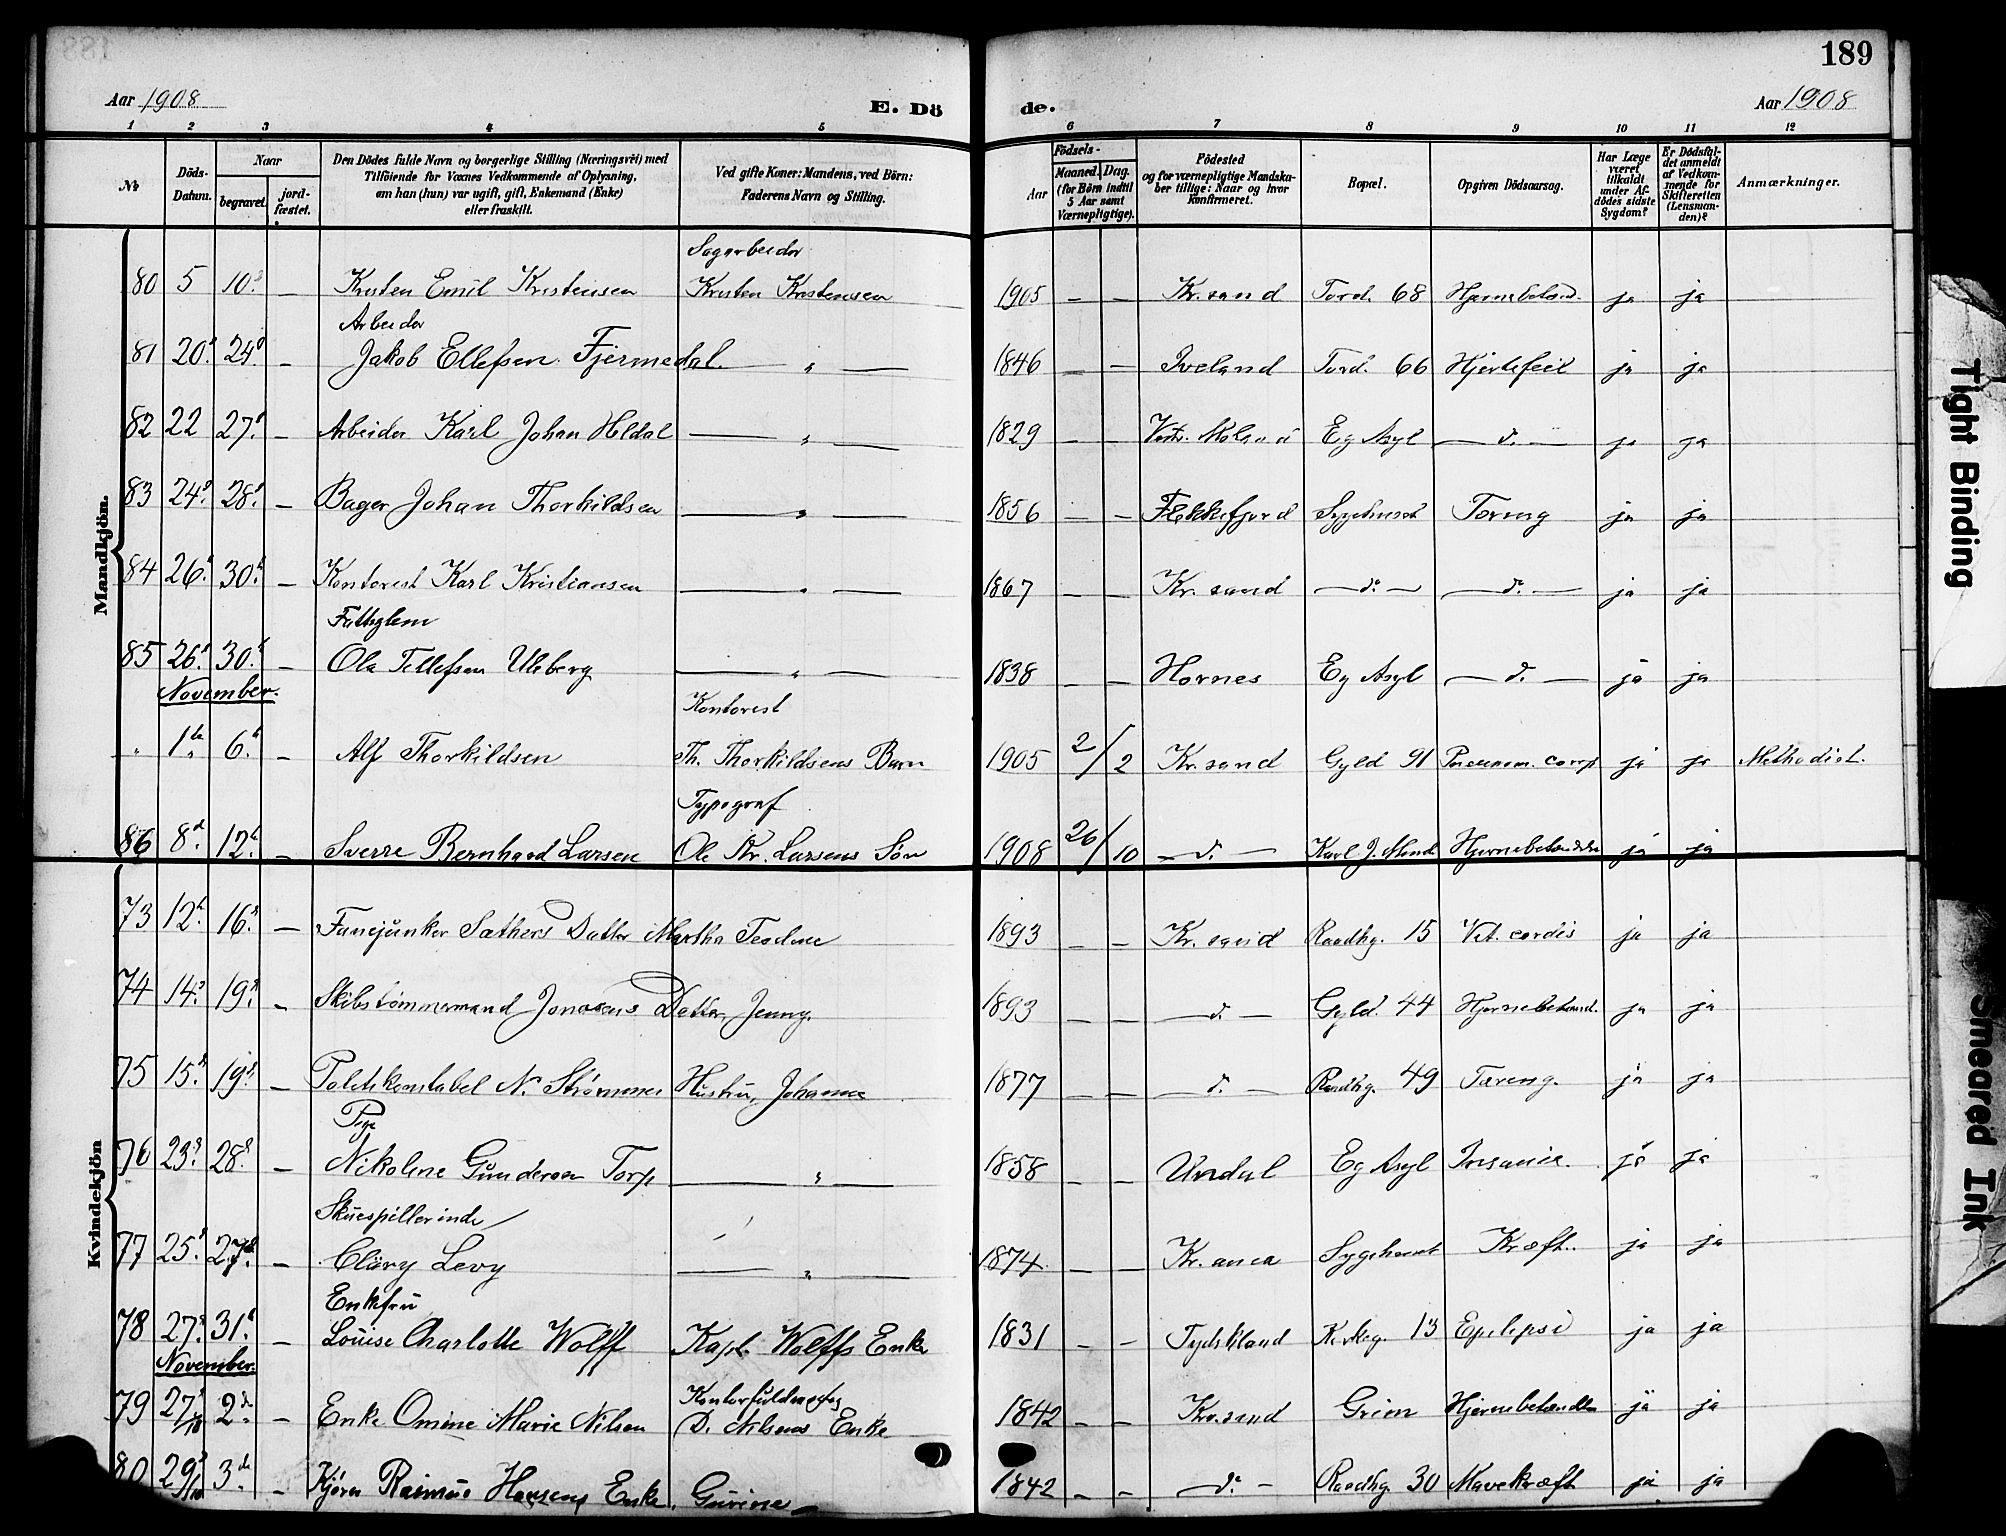 189
Aar 1908
E. Dö de.
Aar 1908
1 2 3 4 5 6 7 8 9 10 11 12
№
Döds-Datum.
Naar
begravet.
jord-fæstet.
Den Dödes fulde Navn og borgerlige Stilling (Næringsvei) med Tilföiende for Voxnes Vedkommende af Oplysning, om han (hun) var ugift, gift, Enkemand (Enke) eller fraskilt.
Ved gifte Koner: Mandens, ved Börn: Faderens Navn og Stilling.
Födsels-
Aar
Maaned. Dag.
(for Börn indtil 5 Aar samt Værnepligtige).
Födested og for værnepligtige Mandskaber tillige: Naar og hvor konfirmeret.
Bopæl.
Opgiven Dödsaarsag.
Har Læge været tilkaldt under Afdödes sidste Sygdom?
Er Dödsfaldet anmeldt af Vedkommende for Skifteretten (Lensmanden)?
Anmærkninger.
Mandkjön.
Sagarbeider
80 5 10. — Kristen Emil Kristensen Kristen Kristensen 1905 — — Kr.sand Tord. 68 Hjernebetænd. ja ja
Arbeider
81 20. 24. — Jakob Ellefsen Fjermedal. — „ — 1846 — — Iveland Tord. 66 Hjertefeil ja ja
82 22 27. — Arbeider Karl Johan Heldal — „ — 1829 — — Eg Asyl — d. — ja ja
83 24. 28. — Bager Johan Thorkildsen — „ — 1856 — — Flekkefjord Sygehuset Tæring ja ja
84 26. 30. — Kontorist Karl Kristiansen — „ — 1867 — — Kr.sand — do. — — do. — ja ja
Fattiglem
85 26. 30. — Ole Tellefsen Uleberg — „ — 1838 — — Hornes Eg Asyl — d. — ja ja
November.
Kontorist
„ 1ste 6. — Alf Thorkildsen Th. Thorkildsens Barn 1905 2/2 Kr.sand Gyld 91 ja ja Methodist.
Typograf
86 8d. 12. — Sverre Bernhard Larsen Ole Kr. Larsens Søn 1908 26/10 — d. — Hjernebetændelse ja ja
Kvindekjön
73 12. 16. — Fanejunker Sæthers Datter Martha Teodine 1893 — — Kr.sand Raadhg. 15 Vit. cordis ja ja
74 14. 19. — Skibstømmermand Jonasens Datter, Jenny. 1893 — — — d. — Gyld. 44 Hjernebetænd. ja ja
75 15. 19. — Politikonstabel N. Strømmes Hustru, Johanne 1877 — — — d. — Raadhg. 49 Tæring. ja ja
Pige
76 23. 28. — Nikoline Gundersen Torp — „ — 1858 — — Undal Eg Asyl Insania. ja ja
Skuespillerinde
77 25. 27. — Clary Levy — „ — 1874 — — Kr.ania Sygehuset Kræft. ja ja
Enkefru
78 27. 31. — Louise Charlotte Wolff Kapt. Wolffs Enke 1831 — Tydskland Kirkeg. 13 Epilepsi ja ja
November.
Kontorfuldmægtig
79 27/10 2den. — Enke Omine Marie Nilsen D. Nilsens Enke 1842 — — Kr.sand Grim Hjernebetændelse ja ja
80 29/10 3de. — Kjører Rasmus Hansens Enke, Gurine 1842 — — — do. — Raadhg. 30 Mavekræft ja ja
Tight Binding
Smeared Ink